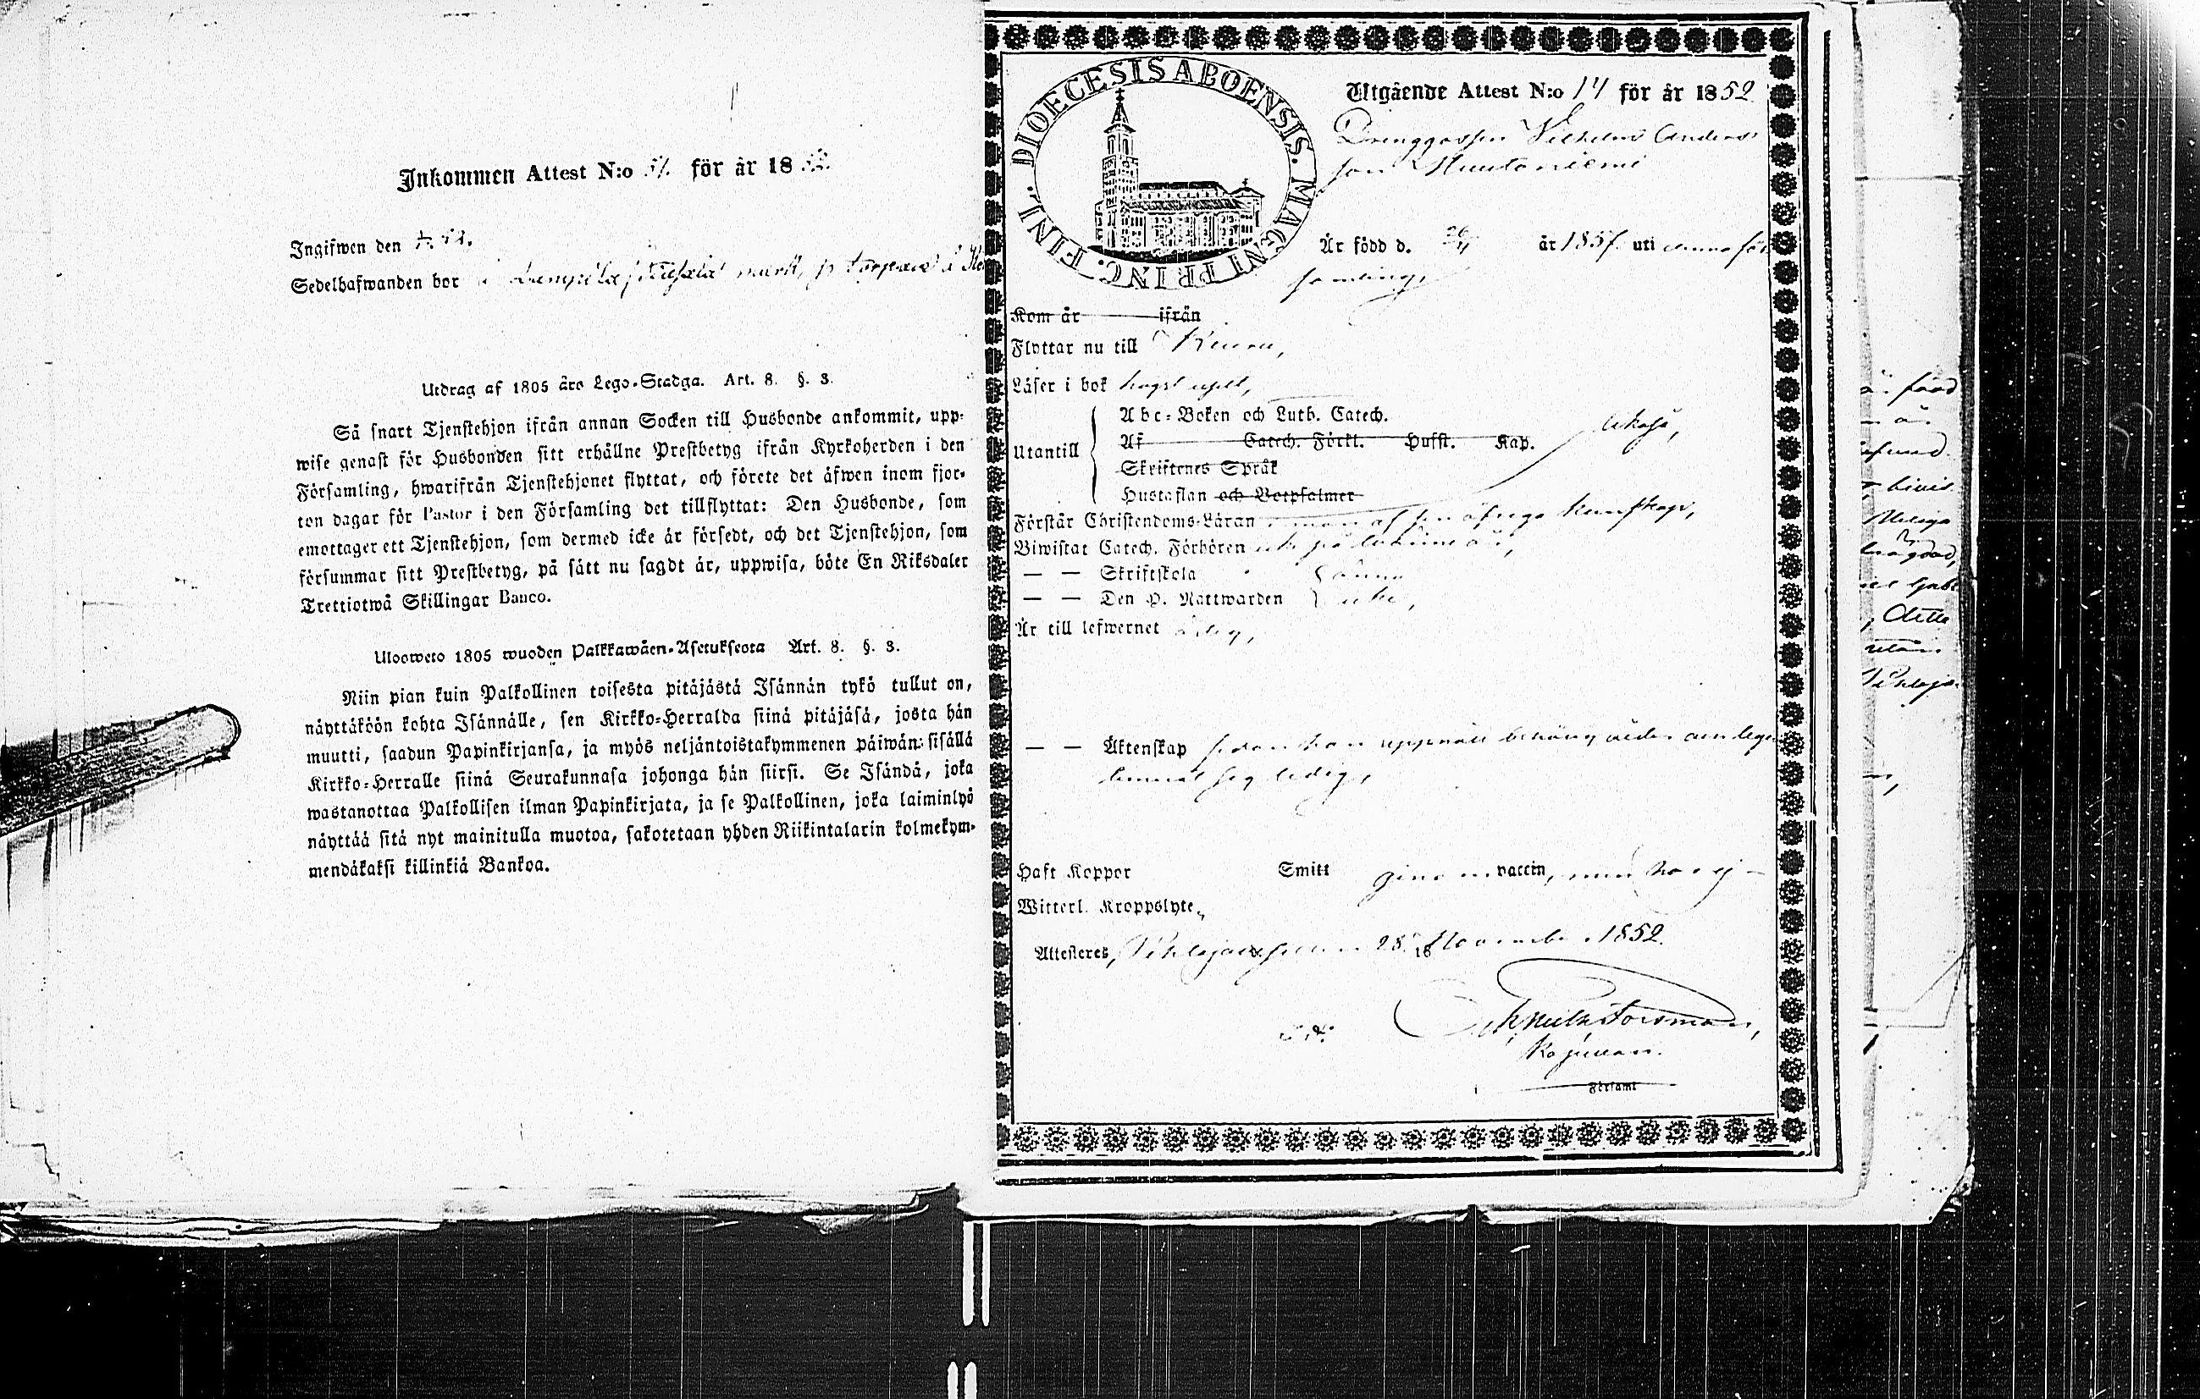 Inkommen Attest N:o 51. för år 1852.
Ingifwen den
Sedelhafwanden bor
Utdrag af 1805 års Lego-Stadga. Art. 8. §. 3.
Så snart Tjenstehjon ifrån annan Socken till Husbonde ankommit, upp-
wise genast för Husbonden sitt erhållne Prestbetyg ifrån Kyrkoherden i den
Församling, hwarifrån Tjenstehjonet flyttat, och förete det äfwen inom fjor-
ton dagar för Pastor i den Församling det tillflyttat: Den Husbonde, som
emottager ett Tjenstehjon, som dermed icke är försedt, och det Tjenstehjon, som
försummar sitt Prestbetyg, på sätt nu sagdt är, uppwisa, böte En Riksdaler
Trettiotwå Skillingar Banco.
Uloosweto 1805 wuoden Palkkawäen-Asetuksesta Art. 8. §. 3.
Niin pian kuin Palkollinen toisesta pitäjästä Isännän tykö tullut on,
näyttäköön kohta Isännälle, sen Kirkko-Herralda siinä pitäjäsä, josta hän
muutti, saadun Papinkirjansa, ja myös neljäntoistakymmenen päiwän sisällä
Kirkko-Herralle siinä Seurakunnasa johonga hän siirsi. Se Isändä, joka
wastanottaa Palkollisen ilman Papinkirjata, ja se Palkollinen, joka laiminlyö
näyttää sitä nyt mainitulla muotoa, sakotetaan yhden Riikintalarin kolmekym-
mendäkaksi killinkiä Bankoa.
DIOECESIS ABOENSIS. MAGNI PRINC. FINL.
Utgående Attest N:o 14 för år 1852
Drenggossen Vilhelm Anders
son Huutoniemi
Är född d. 26/11 år 1837. uti denna för
samling,
Kom år ifrån
Flyttar nu till Kuru,
Läser i bok högst uselt,
Utantill
Abc-Boken och Luth. Catech.
Af Catech. Förkl. Hufst. Kap. likaså,
Skriftenes Språk
Hustaflan och Botpsalmer
Förstår Christendoms-Läran i mon af sin öfriga kunskap,
Biwistat Catech. Förhören
— — Skriftskola ännu
— — Den H. Nattwarden icke,
Är till lefwernet
— — Äktenskap sedan han uppnått behörig ålder
ledig,
Haft Koppor Smitt genom vaccin, men har ej
Witterl. Kroppslyte
Attesteres, 28 18 November 1852.
Forsman,
Kapellan.
Församl